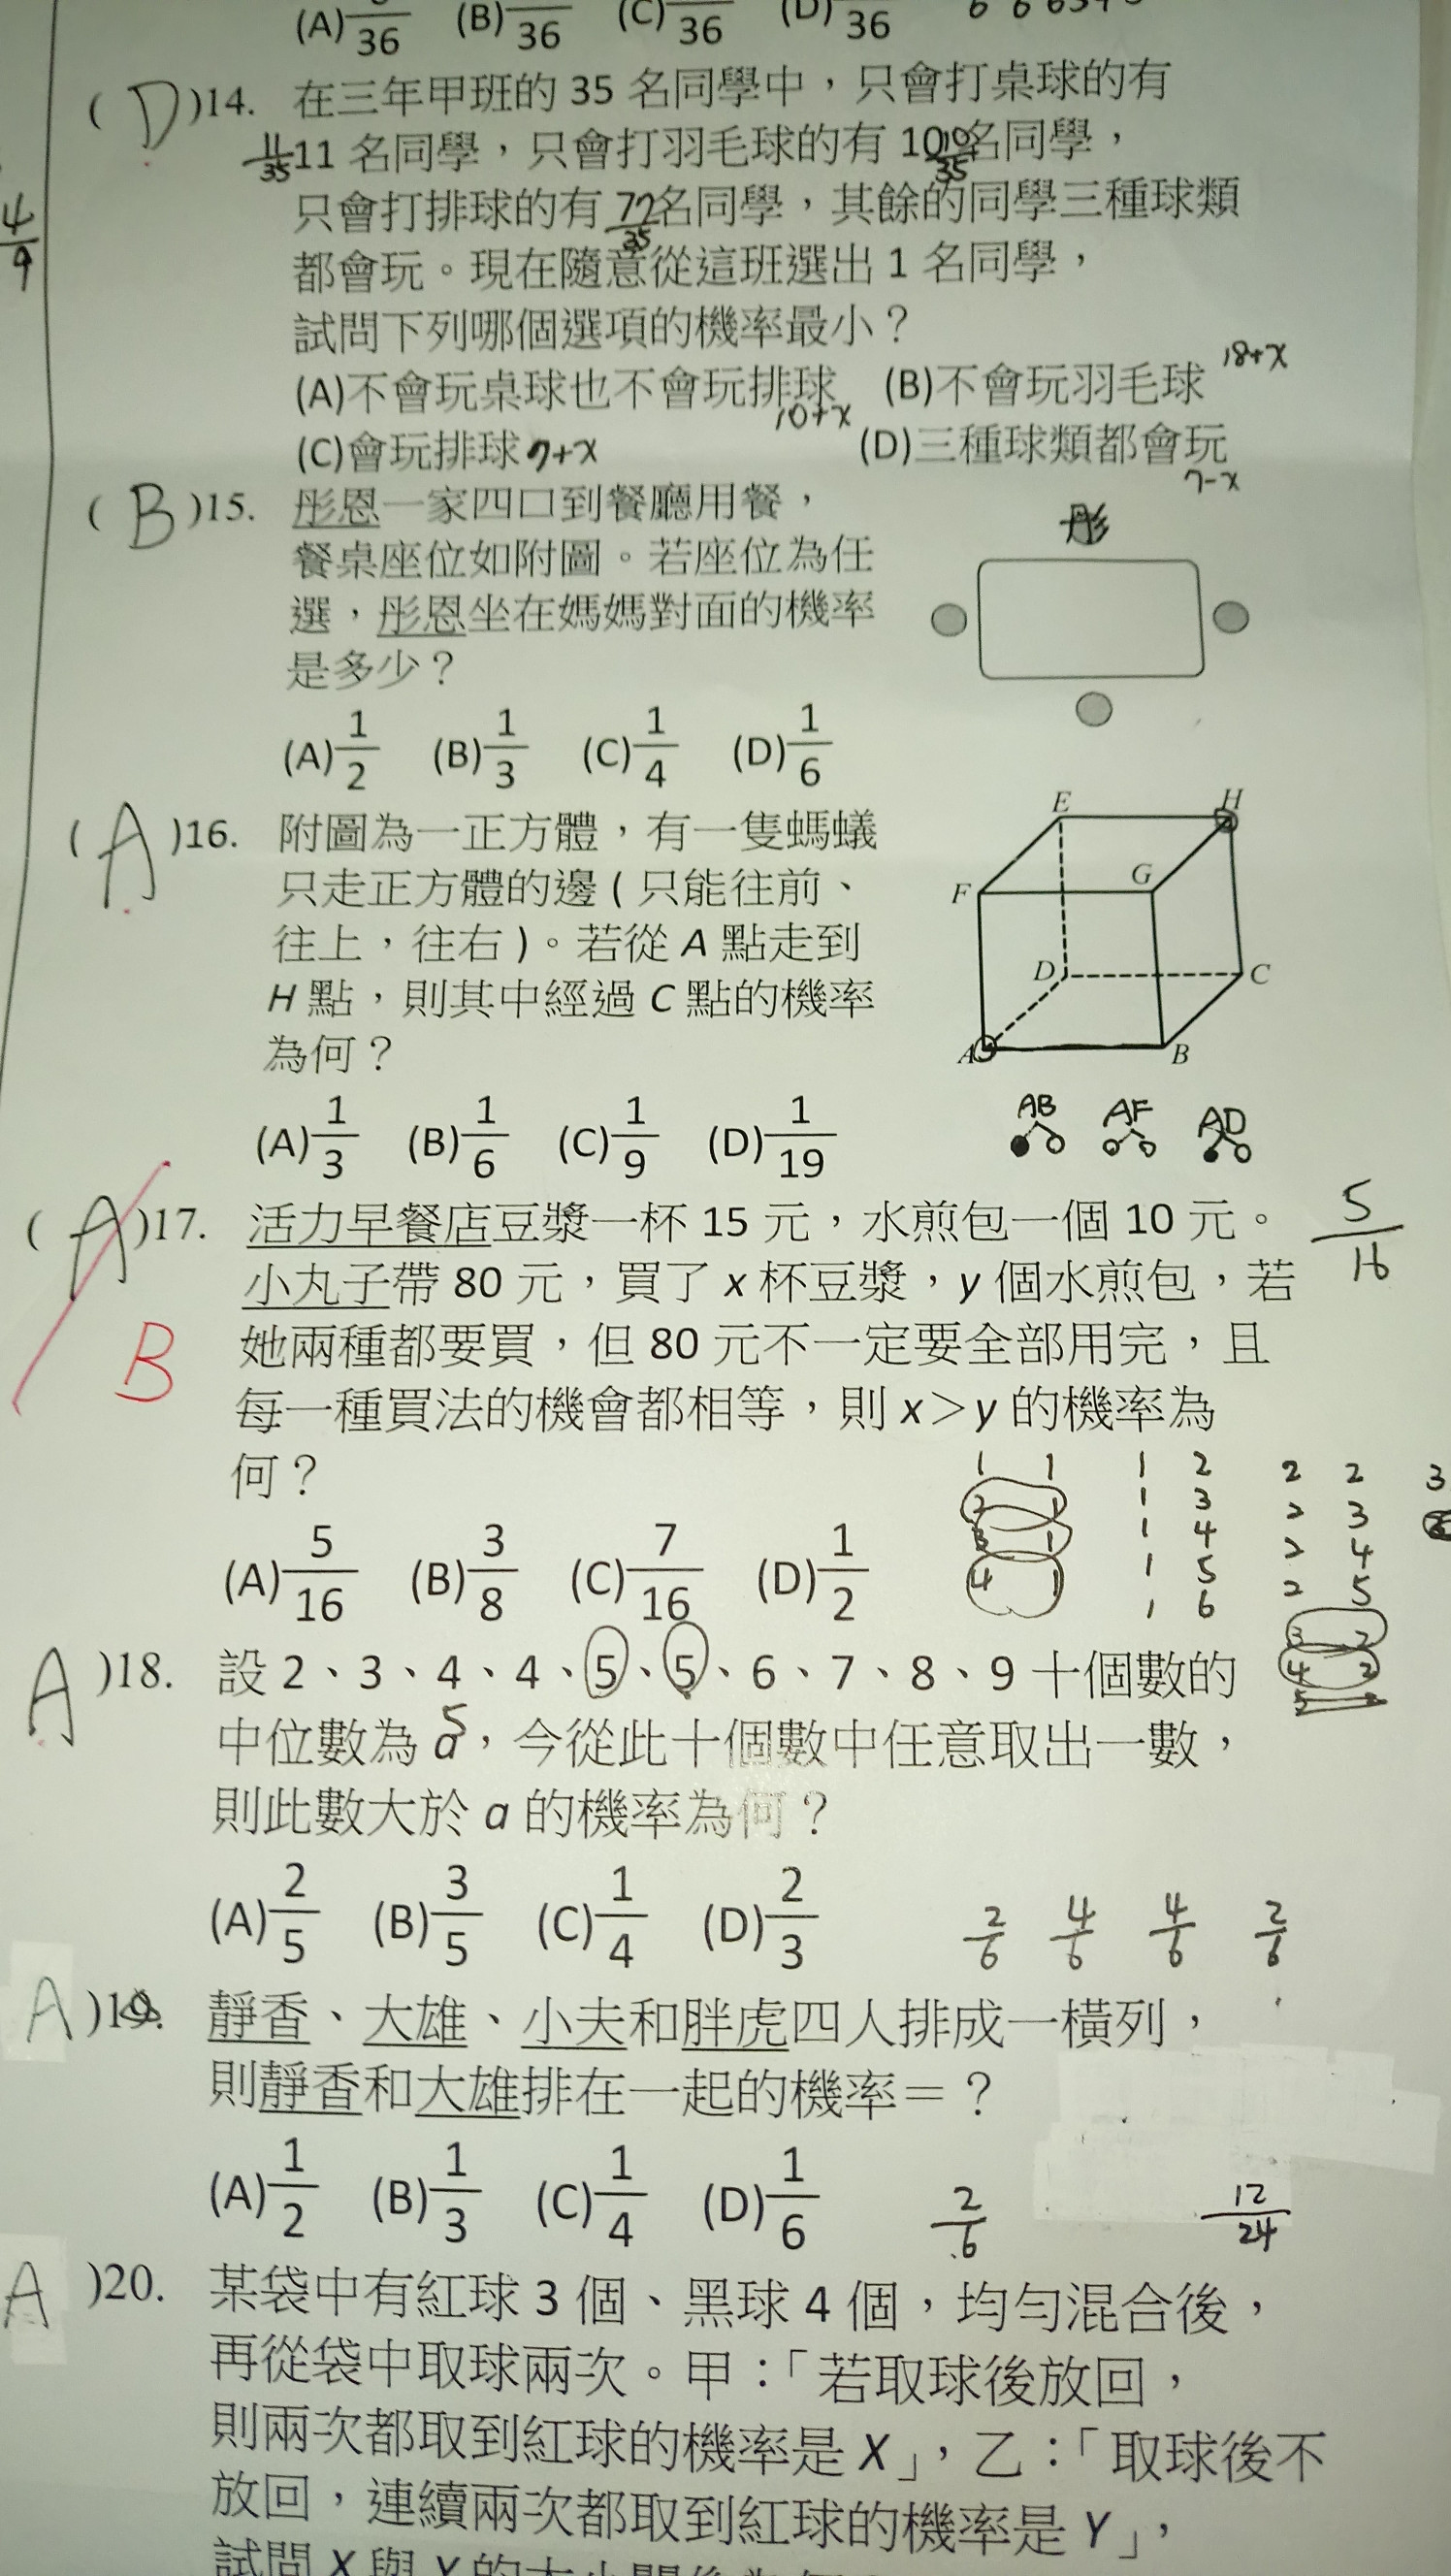 (A)/36 (B)/36 (C)/36 (D)/36
( D )14. 在三年甲班的 35 名同學中，只會打桌球的有
11/35 11 名同學，只會打羽毛球的有 10 名同學， 10/35
只會打排球的有 7 名同學，其餘的同學三種球類 7/35
都會玩。現在隨意從這班選出 1 名同學，
試問下列哪個選項的機率最小？
(A)不會玩桌球也不會玩排球 (B)不會玩羽毛球 18+x
10+x
(C)會玩排球 7+x (D)三種球類都會玩
7-x
4/9
( B )15. 彤恩一家四口到餐廳用餐，
彤
餐桌座位如附圖。若座位為任
選，彤恩坐在媽媽對面的機率
是多少？
(A)1/2 (B)1/3 (C)1/4 (D)1/6
( A )16. 附圖為一正方體，有一隻螞蟻
只走正方體的邊 ( 只能往前、
往上，往右 )。若從 A 點走到
H 點，則其中經過 C 點的機率
為何？
E H
F G
D C
A B
(A)1/3 (B)1/6 (C)1/9 (D)1/19
AB AF AD
( A )17. 活力早餐店豆漿一杯 15 元，水煎包一個 10 元。
5/16
小丸子帶 80 元，買了 x 杯豆漿，y 個水煎包，若
B
她兩種都要買，但 80 元不一定要全部用完，且
每一種買法的機會都相等，則 x＞y 的機率為
何？
1 1 1 2 2 2 3
2 1 1 3 2 3
3 1 1 4 2 4
4 1 1 5 2 5
1 6 3 2
4 2
(A)5/16 (B)3/8 (C)7/16 (D)1/2
A )18. 設 2、3、4、4、5、5、6、7、8、9 十個數的
5
中位數為 a，今從此十個數中任意取出一數，
則此數大於 a 的機率為何？
(A)2/5 (B)3/5 (C)1/4 (D)2/3
2/6 4/6 4/6 2/6
A )19. 靜香、大雄、小夫和胖虎四人排成一橫列，
則靜香和大雄排在一起的機率＝？
(A)1/2 (B)1/3 (C)1/4 (D)1/6
2/6 12/24
A )20. 某袋中有紅球 3 個、黑球 4 個，均勻混合後，
再從袋中取球兩次。甲：「若取球後放回，
則兩次都取到紅球的機率是 X」，乙：「取球後不
放回，連續兩次都取到紅球的機率是 Y」，
試問 X 與 Y 的大小關係為何？